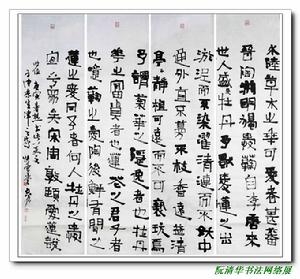 水陸草木之華可愛者甚蕃
晉陶淵明獨愛菊自李唐來
世人盛愛牡丹予獨愛蓮之出
淤泥而不染濯清漣而不妖中
通外直不蔓不枝香遠益清亭
亭靜植可遠觀而不可褻玩焉
予謂菊華之隱逸者也牡丹
華之富貴者也蓮華之君子者
也噫菊之愛陶後鮮有聞
蓮之愛同予者何人牡丹之愛
宜乎眾矣宋周敦頤愛蓮說
阮清华书法网络展